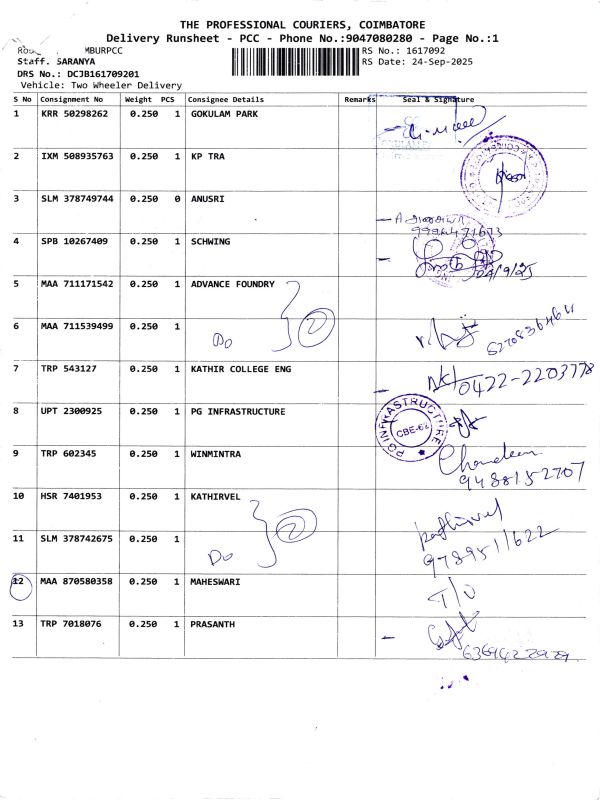 THE PROFESSIONAL COURIERS, COIMBATORE
Delivery Runsheet - PCC - Phone No.:9047080280 - Page No.:1
MBURPCC RS No.: 1617092
Staff. SARANYA RS Date: 24-Sep-2025
DRS No.: DCJB161709201
Vehicle: Two Wheeler Delivery
S No Consignment No Weight PCS Consignee Details Remarks Seal & Signature
1 KRR 50298262 0.250 1 GOKULAM PARK
2 IXM 508935763 0.250 1 KP TRA
3 SLM 378749744 0.250 0 ANUSRI
4 SPB 10267409 0.250 1 SCHWING
5 MAA 711171542 0.250 1 ADVANCE FOUNDRY
2
6 MAA 711539499 0.250 1 Do
7 TRP 543127 0.250 1 KATHIR COLLEGE ENG
0422-2203778
8 UPT 2300925 0.250 1 PG INFRASTRUCTURE
PG INFRASTRUCTURE
CBE-62
9 TRP 602345 0.250 1 WINMINTRA
9488152707
10 HSR 7401953 0.250 1 KATHIRVEL
2 Kathirvel
11 SLM 378742675 0.250 1 Do
9789511622
12 MAA 870580358 0.250 1 MAHESWARI
13 TRP 7018076 0.250 1 PRASANTH